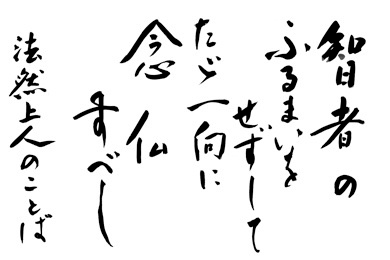 智者の
ふるまいを
せずして
たゞ一向に
念仏
すべし
法然上人のことば